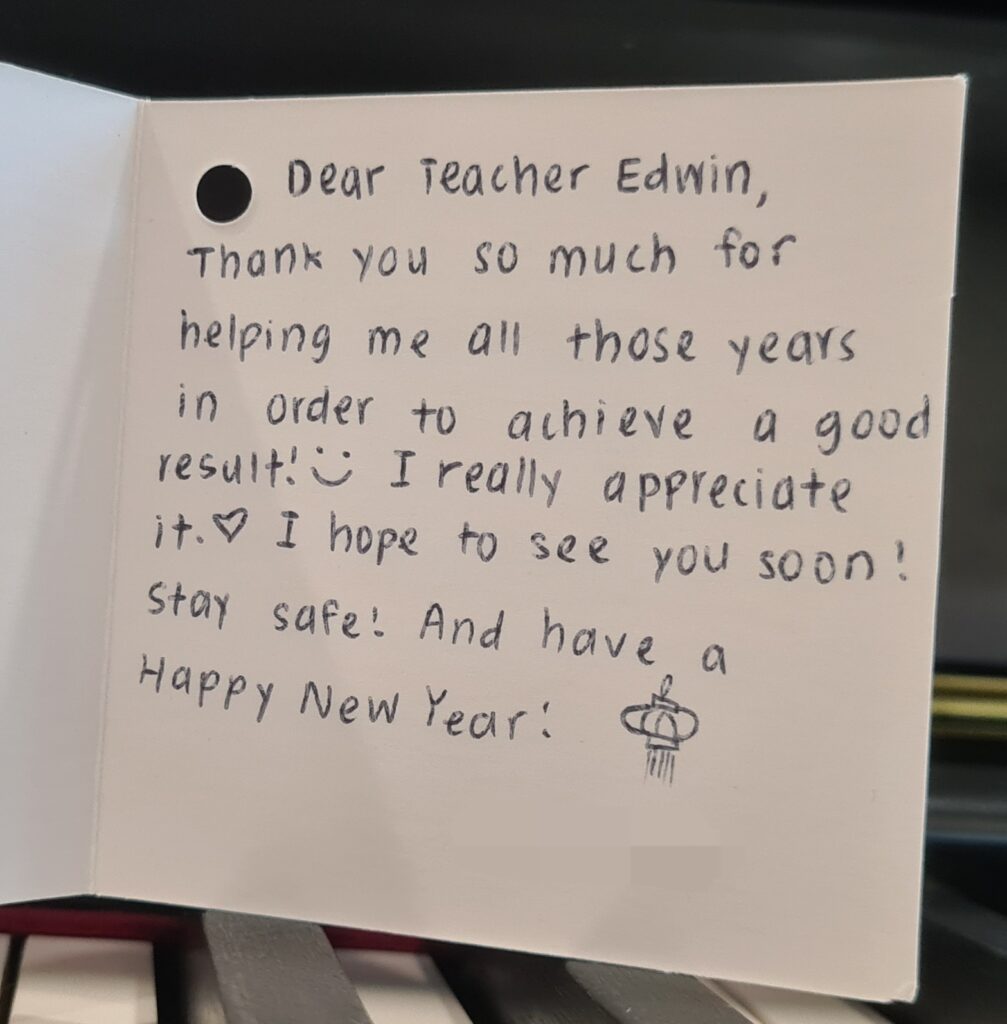 Dear Teacher Edwin,
Thank you so much for
helping me all those years
in order to achieve a good
result! I really appreciate
it.♡ I hope to see you soon!
Stay safe! And have a
Happy New Year!